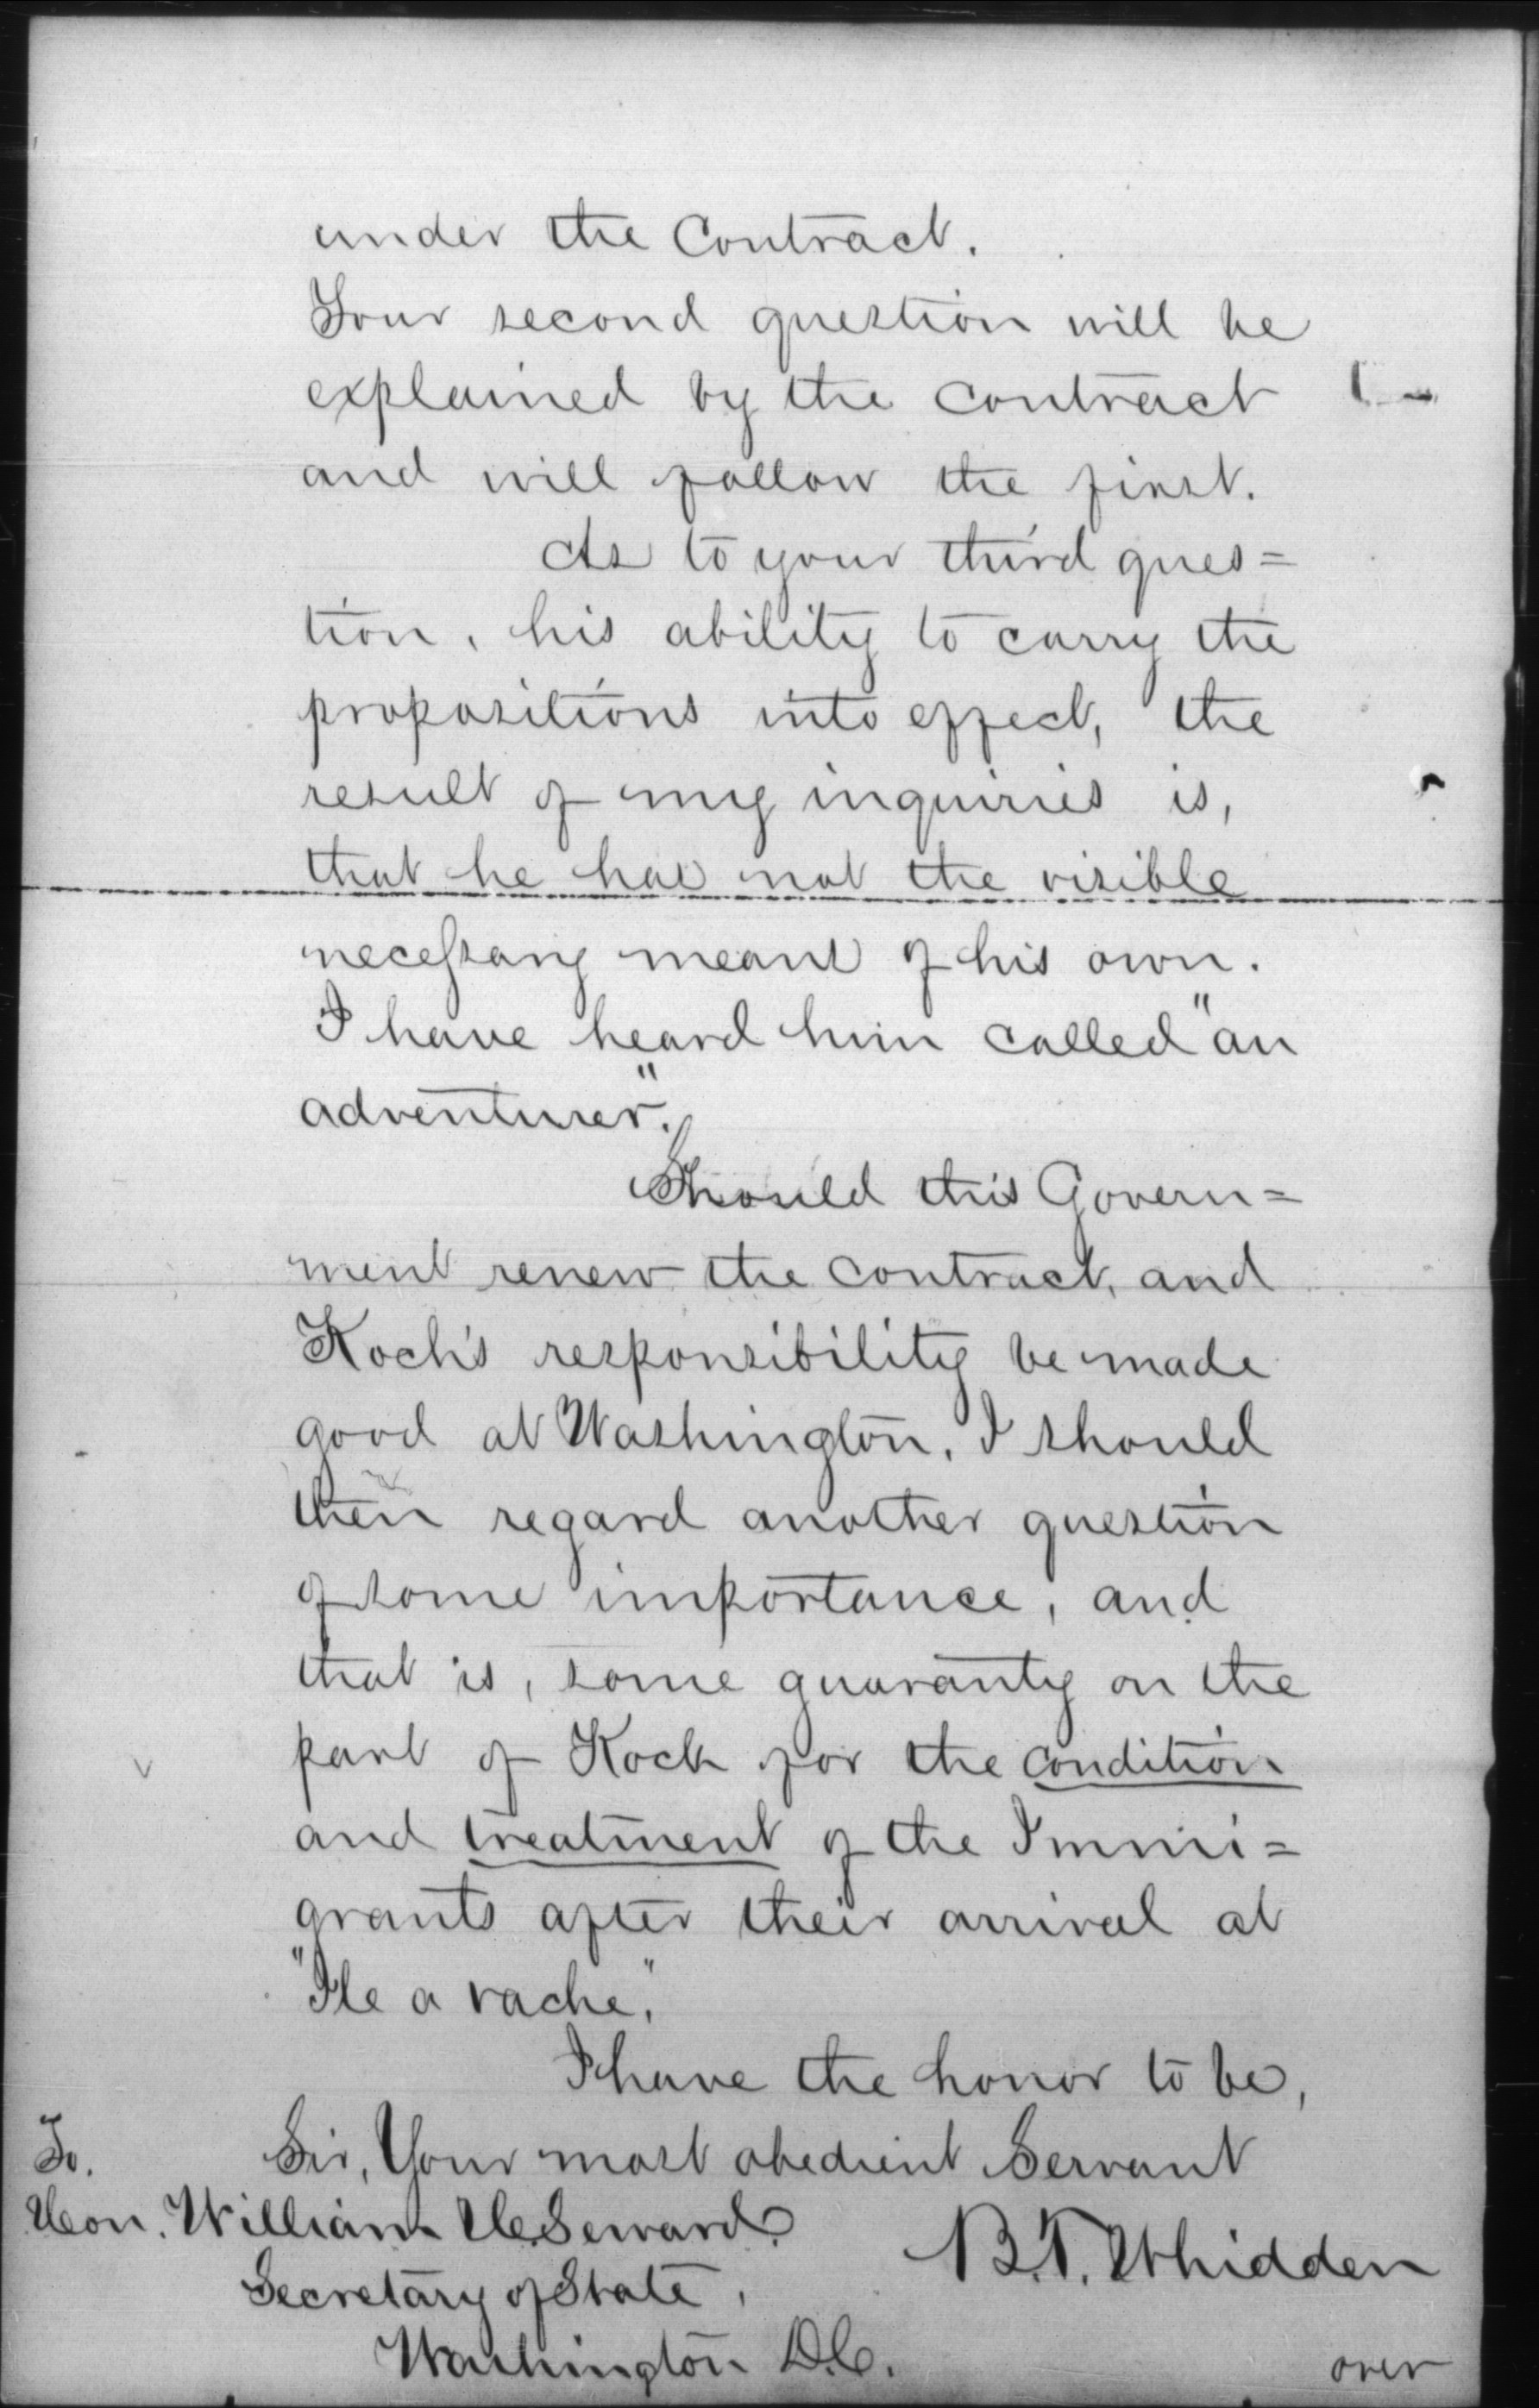 under the Contract.
Your second question will be
explained by the contract
and will follow the first.
As to your third ques=
tion, his ability to carry the
propositions into effect, the
result of my inquiries is,
that he has not the visible
necessary means of his own.
I have heard him called "an
adventurer".
Should this Govern=
ment renew the contract, and
Koch's responsibility be made
good at Washington, I should
then regard another question
of some importance, and
that is, some guaranty on the
part of Kock for the condition
and treatment of the Immi=
grants after their arrival at
"Ile a vache."
I have the honor to be,
Sir, Your most obedient Servant
B.F. Whidden
To.
Hon. William H. Seward.
Secretary of State,
Washington D.C.
over